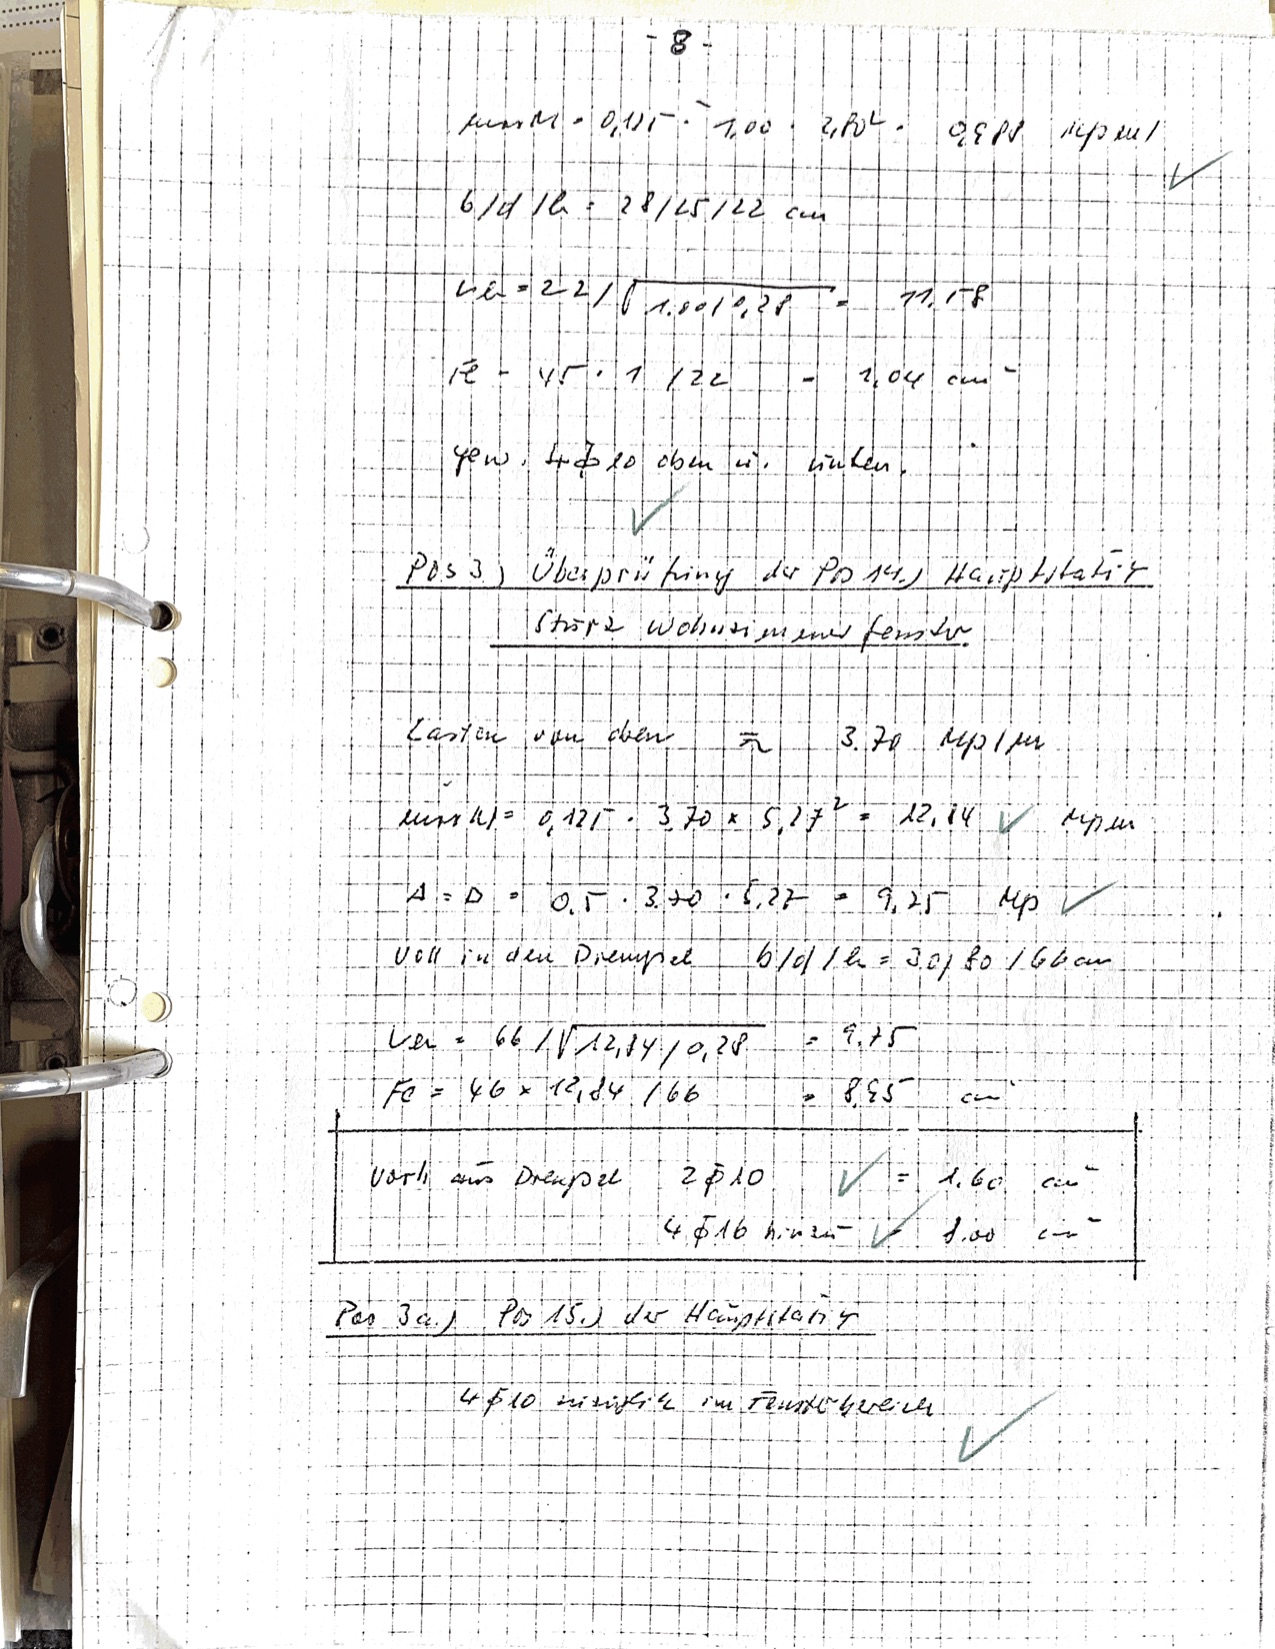 - 8 -
max M = 0,125 · 1,00 · 2,80² = 0,988 Mpm/
b/d/h = 28/25/22 cm
kh = 22/√1.00/0,28 = 11.58
Fe = 45 · 1 /22 = 2,04 cm²
gew. 4 ϕ 10 oben u. unten.
Pos 3.) Überprüfung der Pos 14.) Hauptstatik
Sturz Wohnzimmerfenster.
Lasten von oben ≈ 3.70 Mp/m
max M = 0,125 · 3.70 × 5,27² = 12,84 Mpm
A = B = 0,5 · 3.70 · 5,27 = 9,75 Mp
voll in den Drempel b/d/h = 30/80/66 cm
kh = 66/√12,84/0,28 = 9,75
Fe = 46 × 12,84 /66 = 8,95 cm²
Vorh aus Drempel 2 ϕ 10 = 1.60 cm²
4 ϕ 16 hinzu = 8.00 cm²
Pos 3a.) Pos 15.) der Hauptstatik
4 ϕ 10 zusätzlich im Fensterbereich